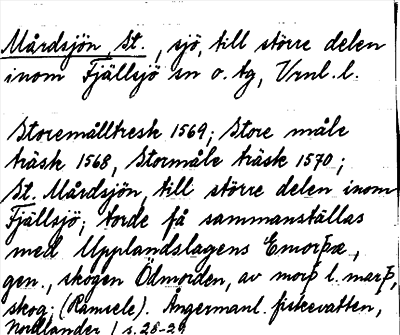 Mårdsjön, St., sjö, till större delen
inom Fjällsjö sn o. tg, Vrnl. l.
Storemålltresk 1569; Store måle
träsk 1568, Stormåle träsk 1570;
St. Mårdsjön, till större delen inom
Fjällsjö; torde få sammanställas
med Upplandslagens Emorþæ,
gen., skogen Ödmorden, av morþ l. marþ,
skog; (Ramsele). Ångermanl. fiskevatten,
Nordlander 1 s. 28-29